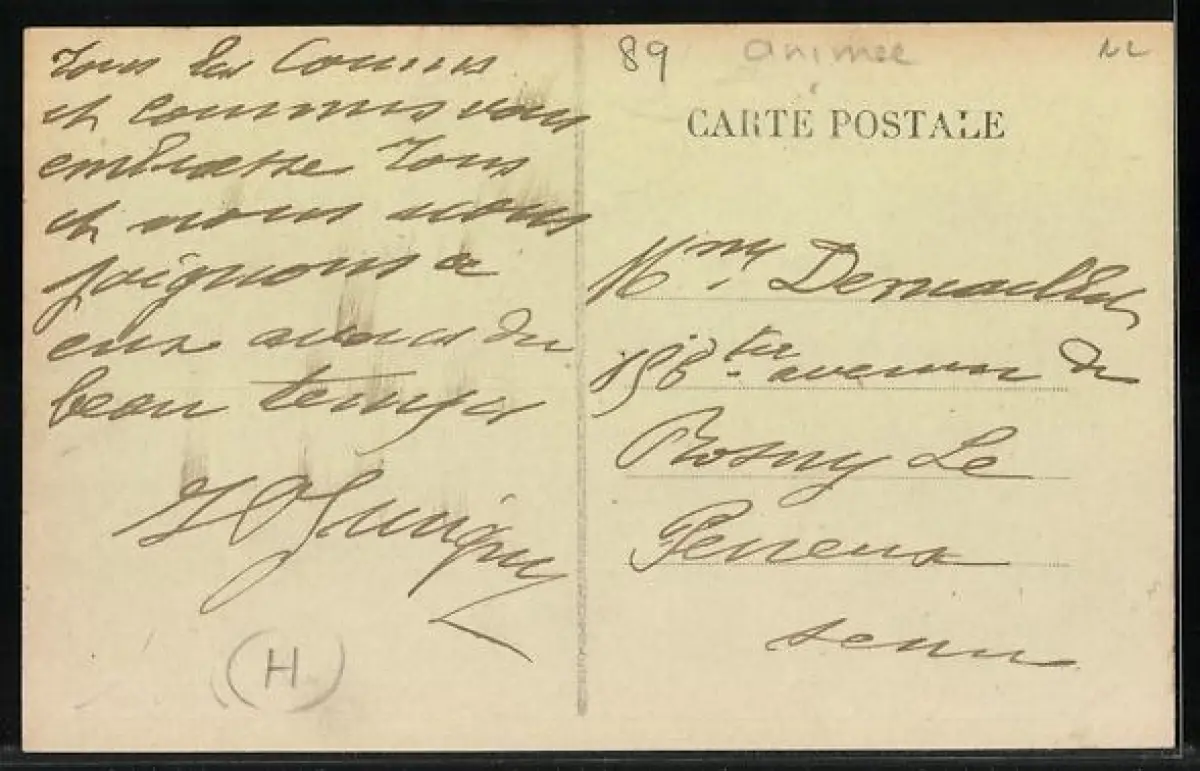 Tous les Cousins
et cousines vous
embrasse Tous
et nous nous
joignons a
eux avons du
beau temps
89
animee
NL
CARTE POSTALE
Mme
ter avenue de
Rosny Le
Perreux
seine
(H)